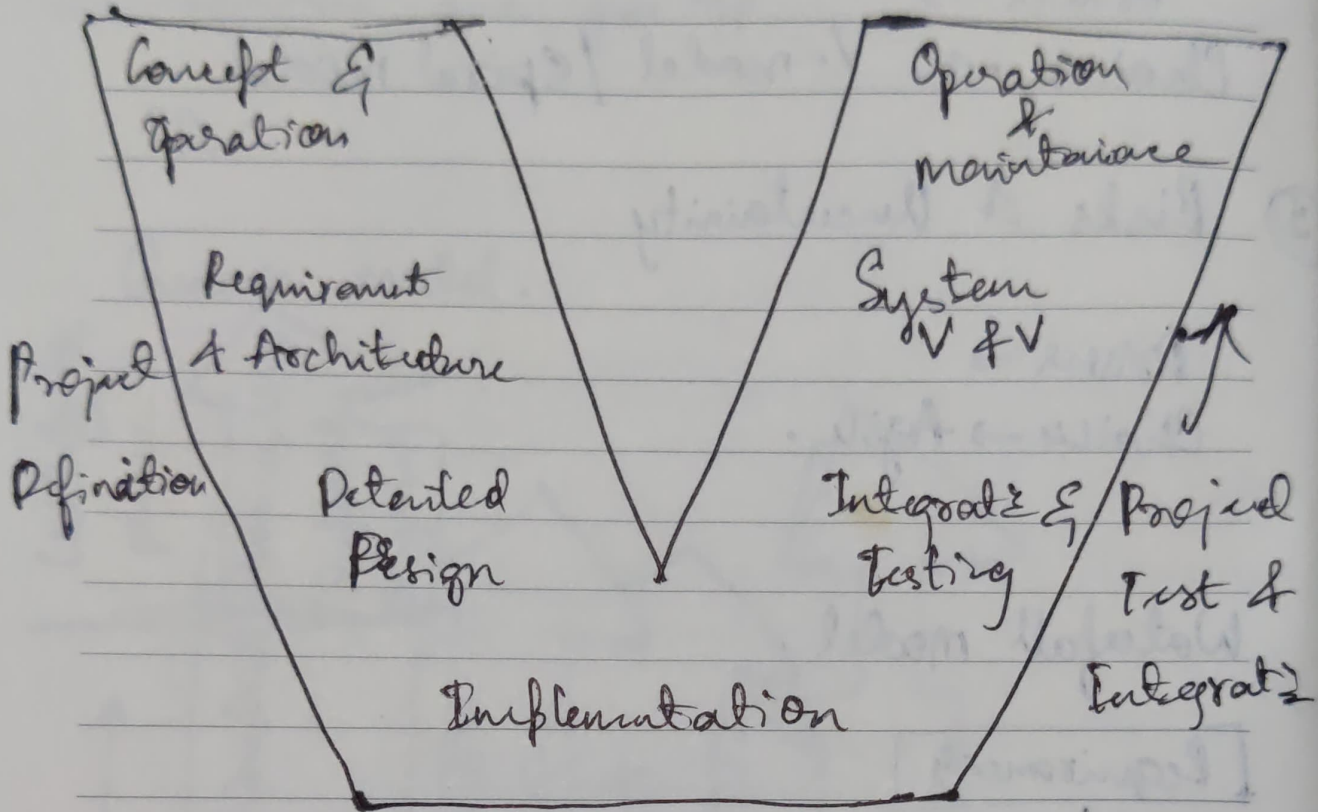 Concept &
Operation
Requirement
& Architecture
Project
Defination
Detailed
Design
Implementation
Operation
&
maintainace
System
V & V
Integrat &
Testing
Project
Test &
Integrat